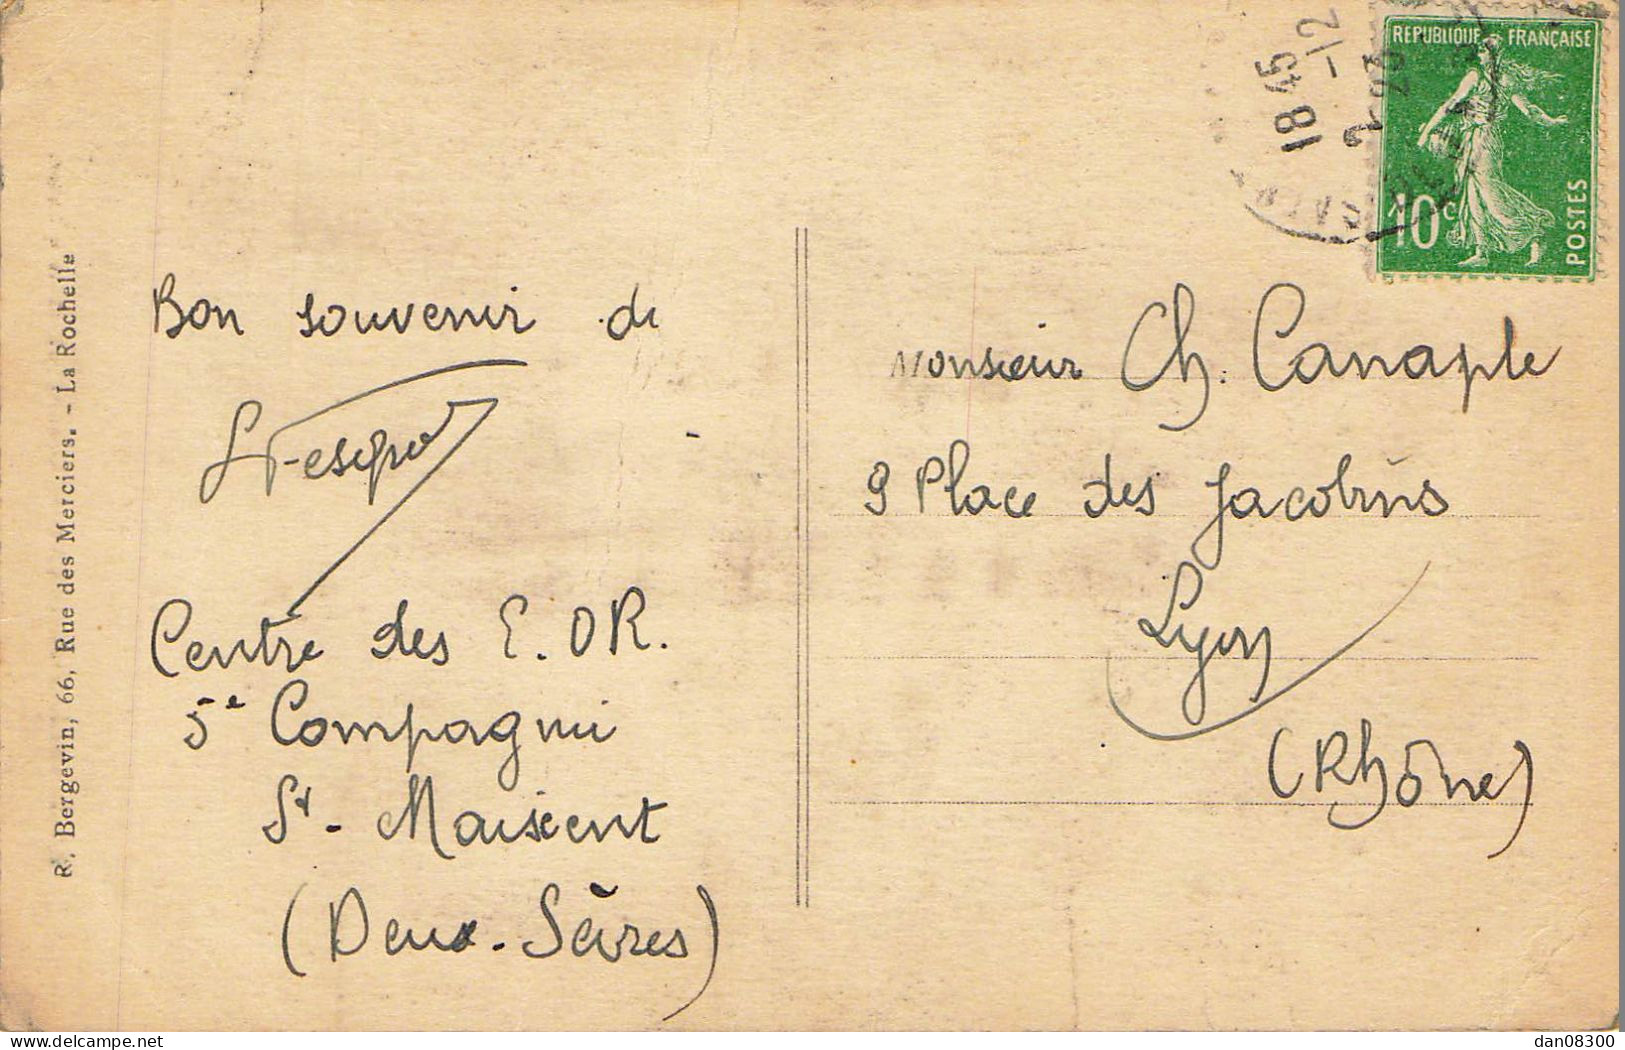 REPUBLIQUE FRANÇAISE
10c
POSTES
18 45
2 - 12
23
Bon souvenir de
Centre des E.OR.
5e Compagnie
St - Maixent
(Deux-Sèvres)
Monsieur Ch. Canaple
9 Place des Jacobins
Lyon
(Rhône)
R. Bergevin, 66, Rue des Merciers. - La Rochelle
delcampe.net
dan08300